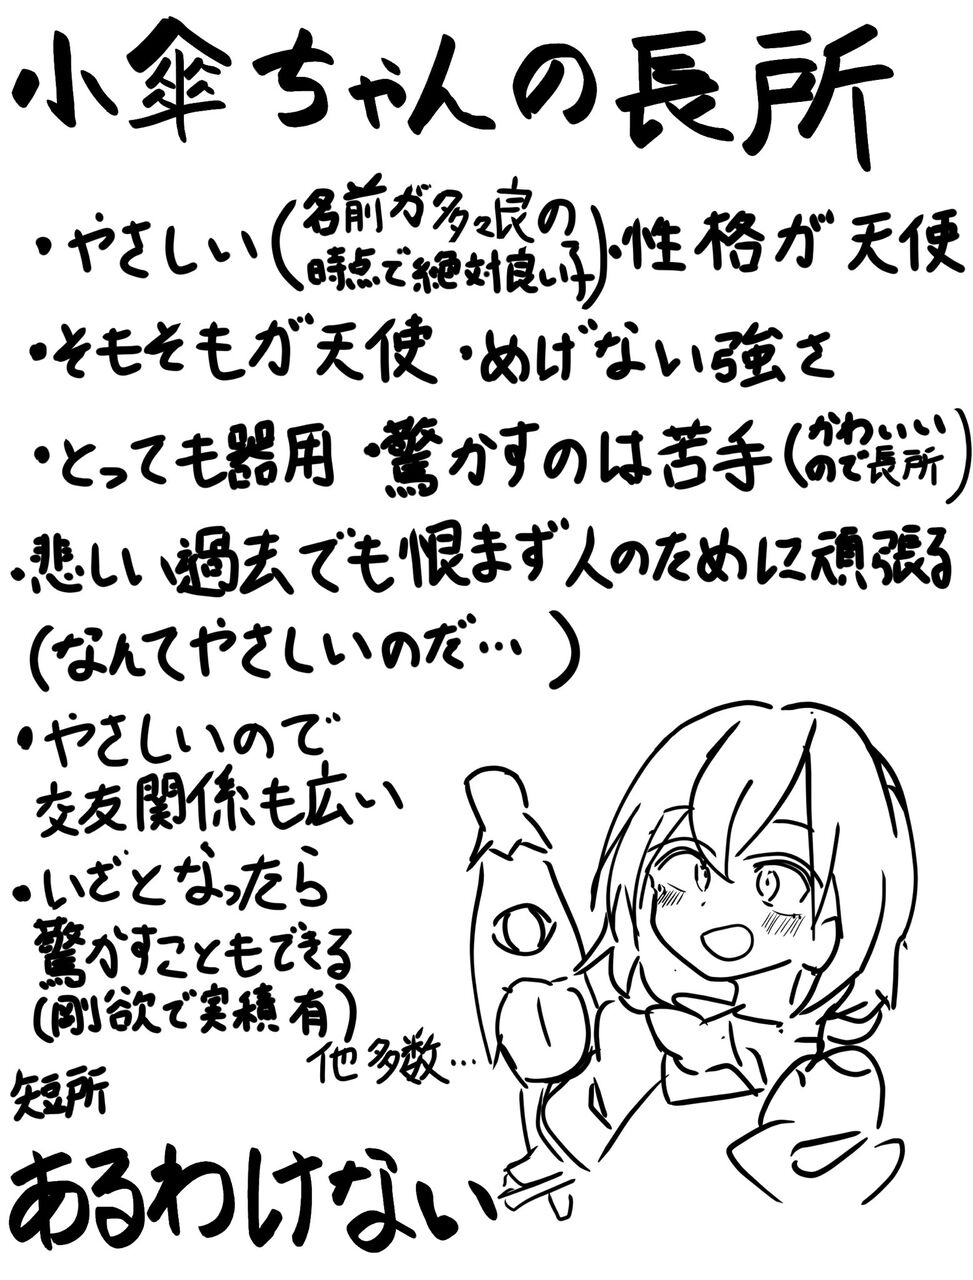 小傘ちゃんの長所
・やさしい(名前が多々良の時点で絶対良い子)・性格が天使
・そもそもが天使・めげない強さ
・とっても器用・驚かすのは苦手(かわいいので長所)
・悲しい過去でも恨まず人のために頑張る
(なんてやさしいのだ…)
・やさしいので
交友関係も広い
・いざとなったら
驚かすこともできる
(剛欲で実積有)
他多数…
短所
あるわけない